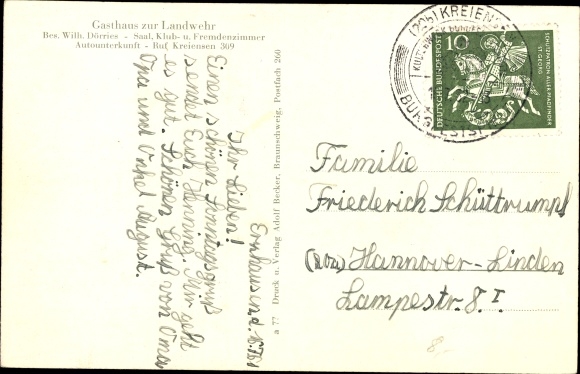 Gasthaus zur Landwehr
Bes. Wilh. Dörries - Saal, Klub- u. Fremdenzimmer
Autounterkunft - Ruf Kreiensen 309
Ihr Lieben!
Einen schönen Sonntagsgruß
sendet Euch Henning. Mir geht
es gut. Schönen Gruß von Oma
Opa und Onkel August.
a 77 Druck u. Verlag Adolf Becker, Braunschweig, Postfach 260
KREIENSEN
10
DEUTSCHE BUNDESPOST
SCHUTZPATRON ALLER PFADFINDER
ST. GEORG
Familie
Friederich Schüttrumpf
Hannover-Linden
Lampestr. 8. I
8,-